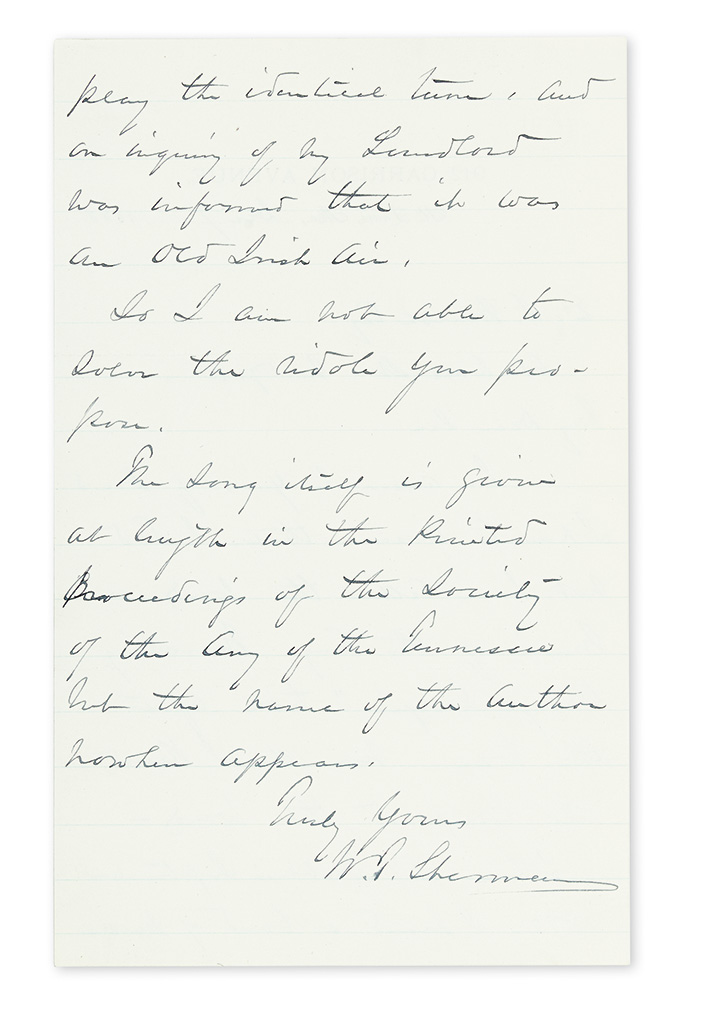 play the identical tune, and
on inquiry of my Landlord
was informed that it was
an Old Irish Air.
So I am not able to
solve the riddle you pro-
pose.
The song itself is given
at length in the Printed
Proceedings of the Society
of the Army of the Tennessee
but the name of the Author
nowhere appears.
Truly Yours
W.T. Sherman